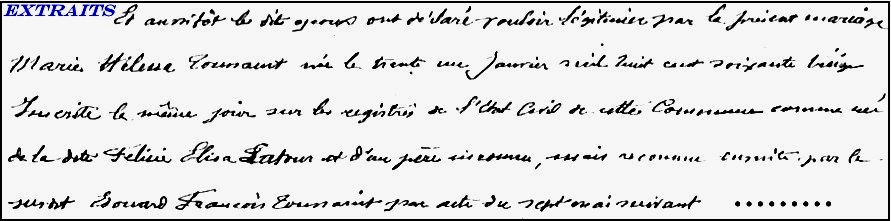 EXTRAITS Et aussitôt les dits époux ont déclaré vouloir légitimer par le présent mariage
Marie Hélène Toussaint née le trente un Janvier mil huit cent soixante
Inscrite le même jour sur les registres de l'Etat Civil de cette Commune comme née
de la dite Félicie Elisa Latour et d'un père inconnu, mais reconnue ensuite par le
susdit Edouard François Toussaint par acte du sept mai suivant .........